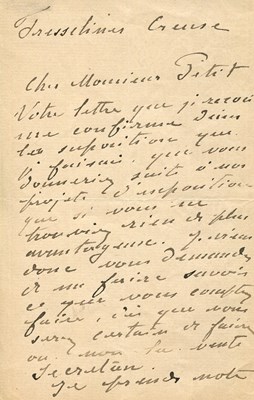 Fresselines Creuse
Cher Monsieur Petit
Votre lettre que je reçois
me confirme dans
les suposition que
je faisais que vous
donneriez suite à nos
projets d'exposition
que si vous ne
trouviez rien de plus
avantageux. Je viens
donc vous demander
de me faire savoir
ce que vous comptez
faire, dès que vous
serez certain de faire
ou non la vente
Secretan.
Je prends note